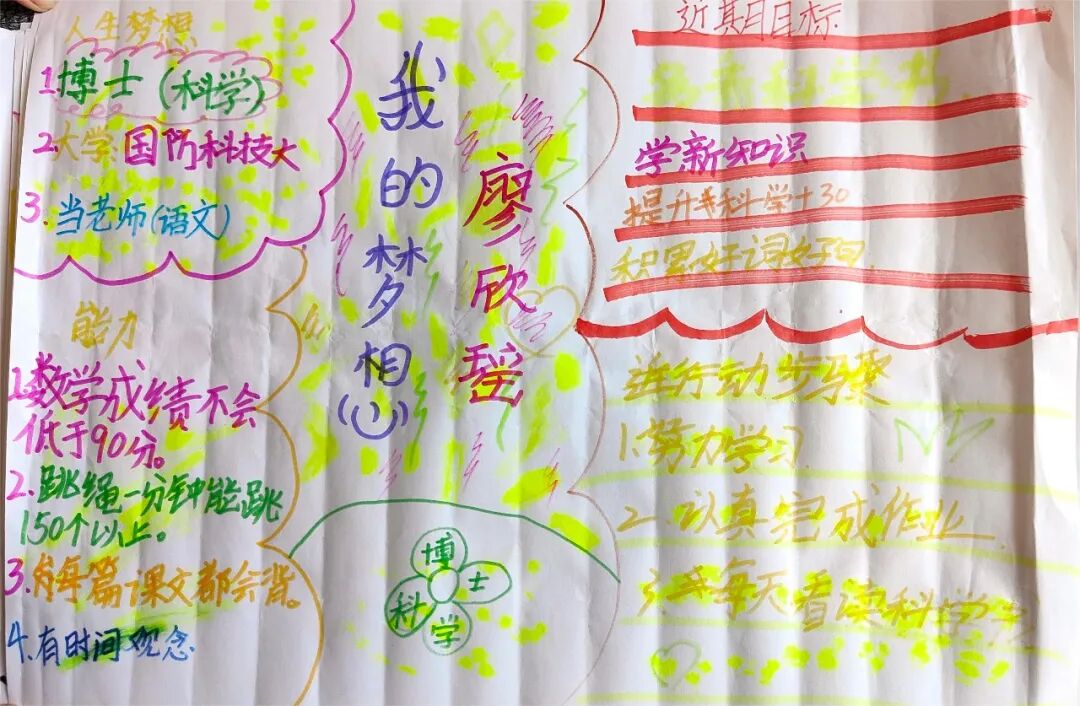 人生梦想
1.博士(科学)
2.大学 国防科技大
3.当老师(语文)
能力
1.数学成绩不会
低于90分。
2.跳绳一分钟能跳
150个以上。
3.每篇课文都会背。
4.有时间观念
我的梦想
廖欣瑶
博士
科学
近期目标
学新知识
提升科学+30
积累好词好句.
进行动步骤
1.努力学习
2.认真完成作业.
3.每天看读科学